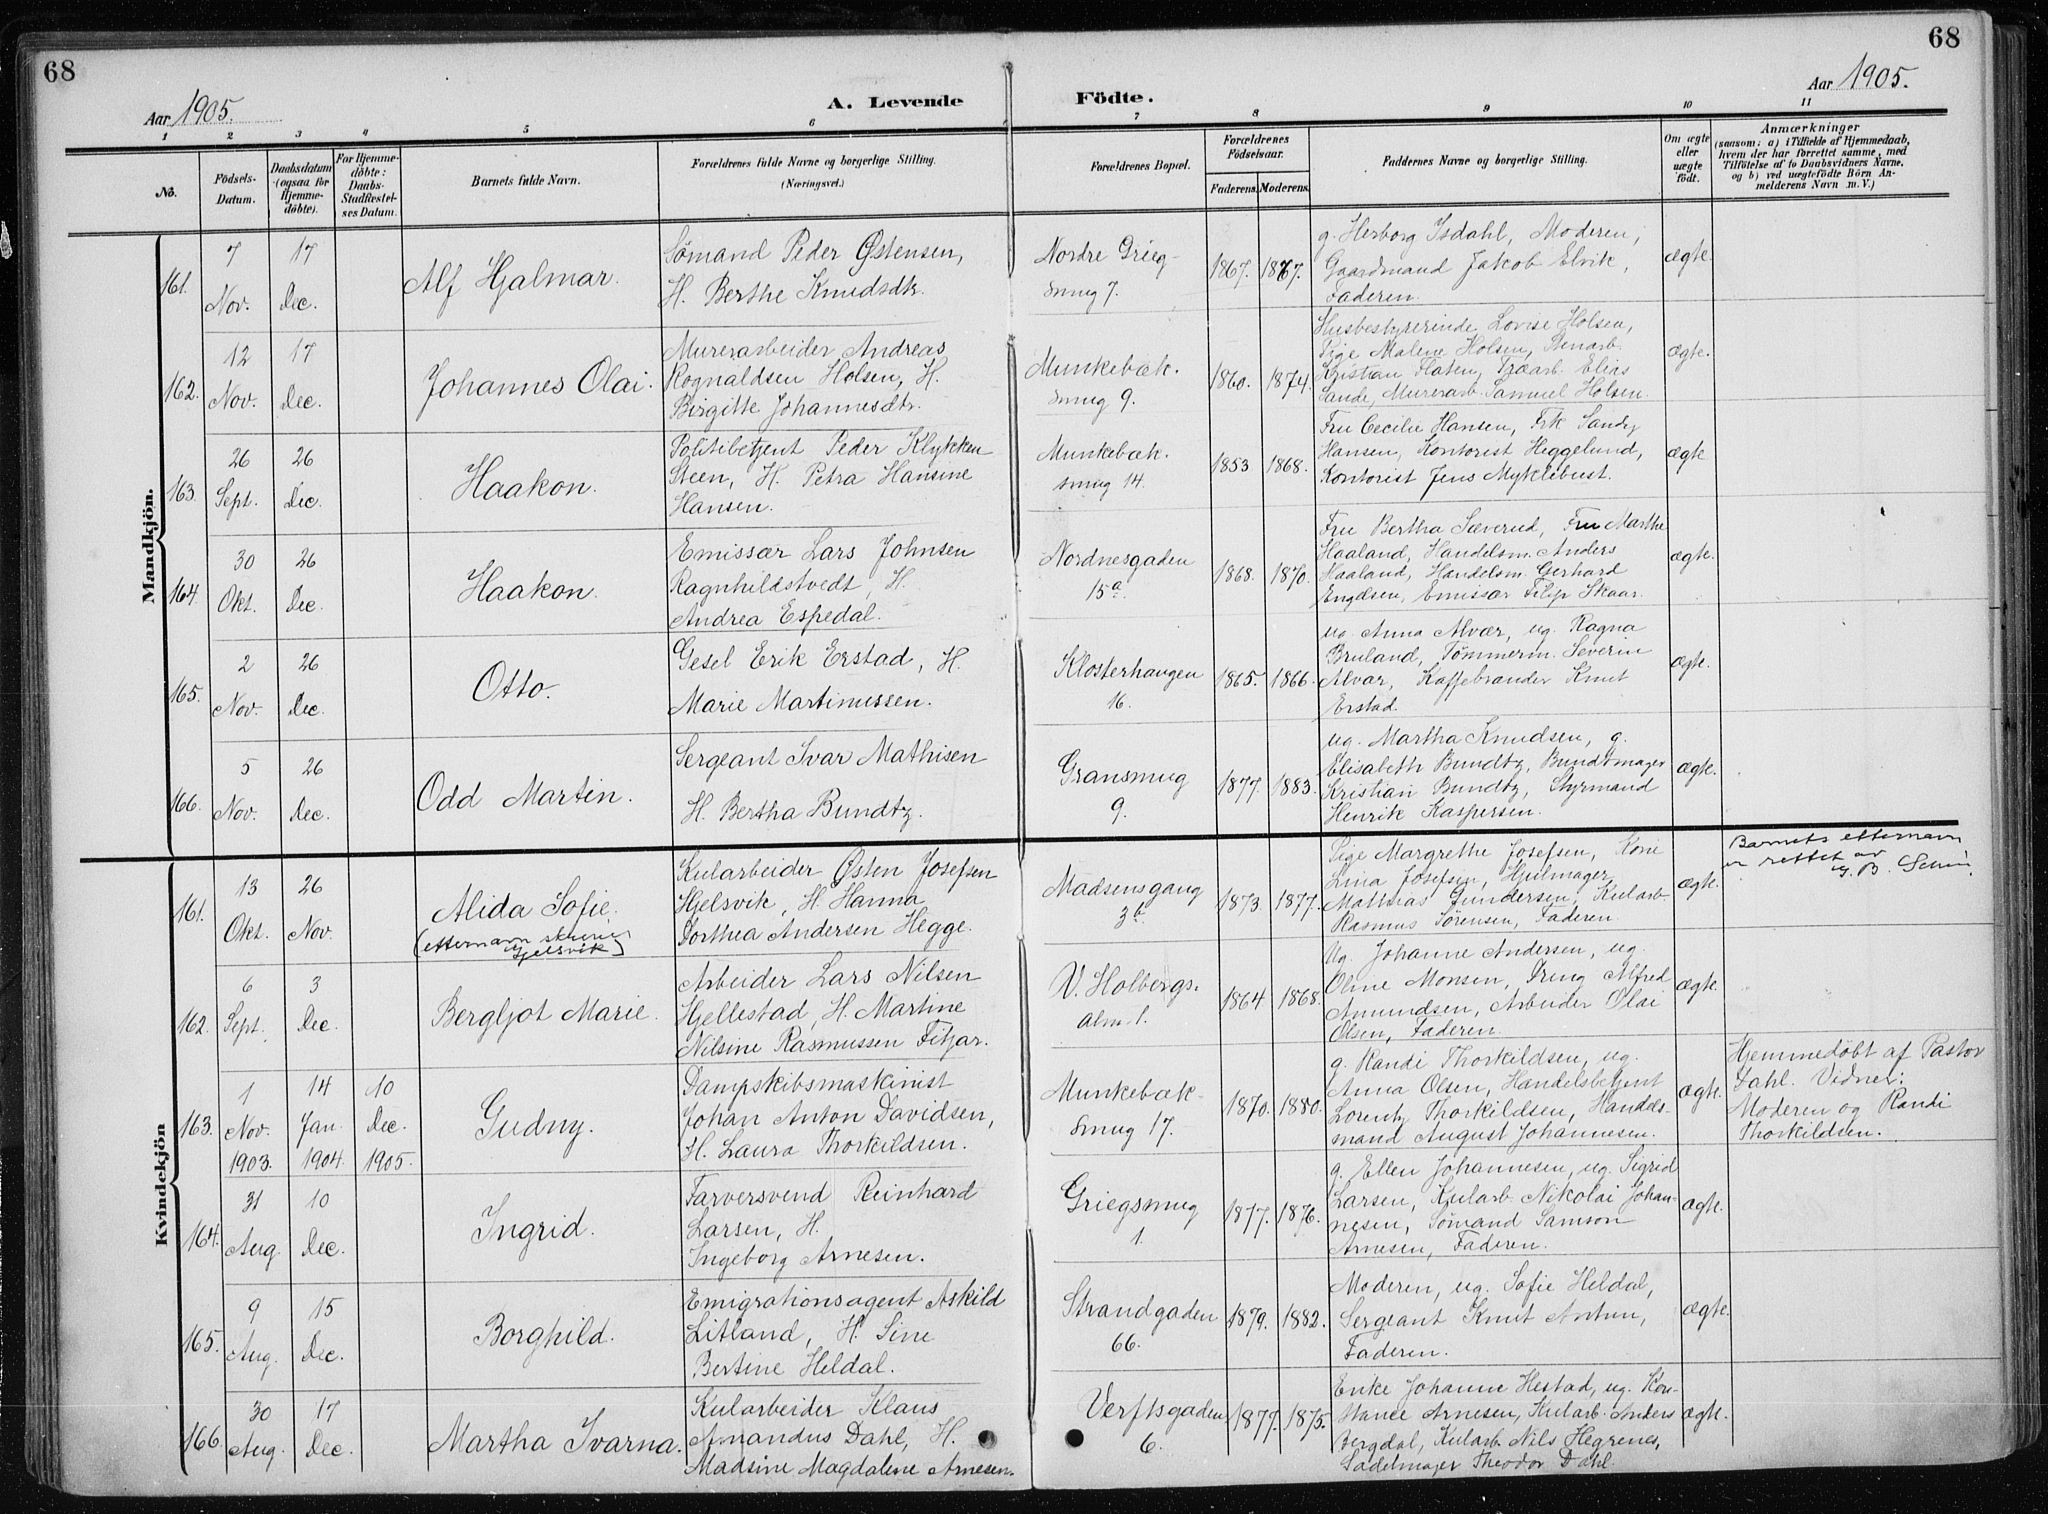 68
68
Aar 1905.
A. Levende Födte.
Aar 1905.
1 2 3 4 5 6 7 8 9 10 11
No.
Födsels-
Datum.
Daabsdatum
(ogsaa for
Hjemme-
döbte).
For Hjemme-
döbte:
Daabs-
Stadfæstel-
ses Datum.
Barnets fulde Navn.
Forældrenes fulde Navne og borgerlige Stilling.
(Næringsvei.)
Forældrenes Bopæl.
Forældrenes
Födselsaar.
Faderens. Moderens.
Faddernes Navne og borgerlige Stilling.
Om ægte
eller
uægte
født.
Anmærkninger
(saasom: a) i Tilfælde af Hjemmedaab,
hvem der har forrettet samme, med
Tilföielse af to Daabsvidners Navne,
og b) ved uægtefödte Börn An-
melderens Navn m. V.)
Mandkjön.
161.
7
Nov.
17
Dec.
Alf Hjalmar.
Sømand Peder Østensen,
H. Berthe Knudsdtr.
Nordre Grieg-
smug 7.
1867. 1867.
g. Herborg Isdahl, Moderen,
Gaardmand Jakob Elvik,
Faderen.
ægte.
162.
12
Nov.
17
Dec.
Johannes Olai.
Murerarbeider Andreas
Rognaldsen Holsen, H.
Birgitte Johannesdtr.
Munkebæk-
smug 9.
1860. 1874.
Husbestyrerinde Lovise Holsen,
Pige Malene Holsen, Stenarb.
Kristian Flaten, Træarb. Elias
Sande, Murerarb. Samuel Holsen
ægte.
163.
26
Sept.
26
Dec.
Haakon.
Politibetjent Peder Klykken
Steen, H. Petra Hansine
Hansen.
Munkebæk-
smug 14.
1853 1868.
Fru Cecilie Hansen, Frk Sandy
Hansen, Kontorist Heggelund,
Kontorist Jens Myklebust.
ægte
164.
30
Okt.
26
Dec.
Haakon.
Emissær Lars Johnsen
Ragnhildstvedt, H.
Andrea Espedal.
Nordnesgaden
15a.
1868. 1870.
Fru Bertha Sæverud, Fru Marthe
Haaland, Handelsm. Anders
Haaland, Handelsm. Gerhard
Engelsen, Emissær Filip Skaar.
ægte.
165.
2
Nov.
26
Dec.
Otto.
Gesel Erik Erstad, H.
Marie Martinussen.
Klosterhaugen
16.
1865. 1866.
ug. Anna Alvær, ug. Ragna
Bruland, Tømmerm. Severin
Alvær, Kaffebrænder Knut
Erstad.
ægte.
166.
5
Nov.
26
Dec.
Odd Martin.
Sergeant Ivar Mathisen
H. Bertha Bundtz.
Gransmug
9.
1877. 1883.
ug. Martha Knudsen, g.
Elisabeth Bundtz, Bundtmager
Kristian Bundtz, Styrmand
Henrik Kaspersen.
ægte.
Kvindekjön
161.
13
Okt.
26
Nov.
Alida Sofie.
(etternavn skrives
Hjelsvik)
Kularbeider Østen Josefsen
Hjelsvik, H. Hanna
Dorthea Andersen Hegge.
Madsensgang
3b.
1873. 1877.
Pige Margrethe Josefsen, Kone
Lina Josefsen, Hjulmager
Mathias Gundersen, Kularb.
Rasmus Sørensen, Faderen.
ægte.
Barnets etternavn
er rettet av
162.
6
Sept.
3
Dec.
Bergljot Marie.
Arbeider Lars Nilsen
Hjellestad, H. Martine
Nilsine Rasmussen Fitjar.
V. Holbergs-
alm. 1.
1864 1868.
Ug. Johanne Andersen, ug.
Oline Monsen, Dreng Alfred
Amundsen, Arbeider Olai
Olsen, Faderen.
ægte.
163.
1
Nov.
1903.
14
Jan.
1904.
10
Dec.
1905.
Gudny.
Dampskibsmaskinist
Johan Anton Davidsen,
H. Laura Thorkildsen.
Munkebæk-
smug 17.
1870. 1880.
g. Randi Thorkildsen, ug.
Anna Olsen, Handelsbetjent
Lorentz Thorkildsen, Handels-
mand August Johannesen.
ægte.
Hjemmedöbt af Pastor
Dahl. Vidner:
Moderen og Randi
Thorkildsen.
164.
31
Aug.
10
Dec.
Ingrid.
Farversvend Reinhard
Larsen, H.
Ingeborg Arnesen.
Griegsmug
1.
1877. 1876.
g. Ellen Johannesen, ug. Sigrid
Larsen, Kularb. Nikolai Johan-
nesen, Sømand Samson
Arnesen, Faderen.
ægte.
165.
9
Aug.
15
Dec.
Borghild.
Emigrationsagent Askild
Litland, H. Sine
Bertine Heldal.
Strandgaden
66.
1879. 1882.
Moderen, ug. Sofie Heldal,
Sergeant Knut Antun,
Faderen.
ægte.
166.
30
Aug.
17
Dec.
Martha Ivarna.
Kularbeider Klaus
Amandus Dahl, H.
Madsine Magdalene Arnesen.
Verftsgaden
6.
1877. 1875.
Enke Johanne Hestad, ug. Kon-
stance Arnesen, Kularb. Anders
Bergdal, Kularb. Nils Hegrenes,
Sadelmager Theodor Dahl.
ægte.